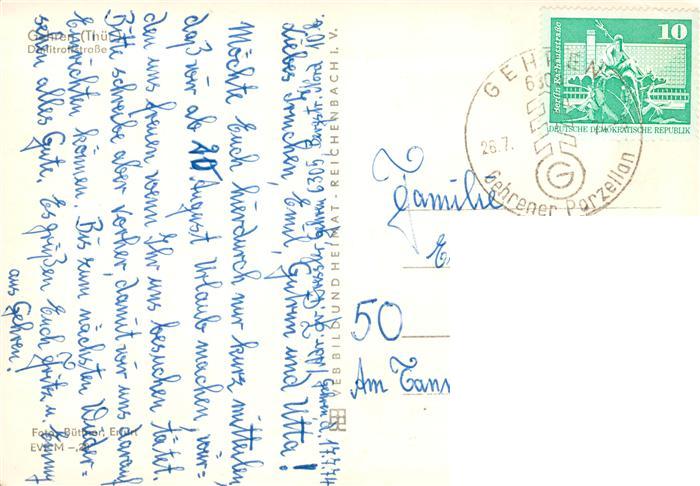 Gehren (Thür.)
Dimitroffstraße
Gehren, d. 17.7.74
Liebes Ännchen, Emil, Gudrun und Utta!
Möchte Euch hierdurch nur kurz mitteilen,
daß wir ab 20 August Urlaub machen, wür=
den uns freuen wenn Ihr uns besuchen tätet.
Bitte schreibe aber vorher, damit wir uns darauf
einrichten können. Bis zum nächsten Wieder=
sehen alles Gute. Es grüßen Euch Fritz u.
aus Gehren.
Foto: Büttner, Erfurt
EVP M -,20
VEB BILD UND HEIMAT · REICHENBACH I. V.
Berlin Rathausstraße
10
DEUTSCHE DEMOKRATISCHE REPUBLIK
GEHREN
26.7.
Gehrener Porzellan
Familie
50
Am